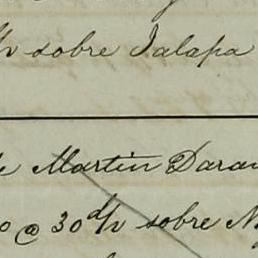 d/v sobre Jalapa
de Martin Daran
0 @ 30 d/v sobre N